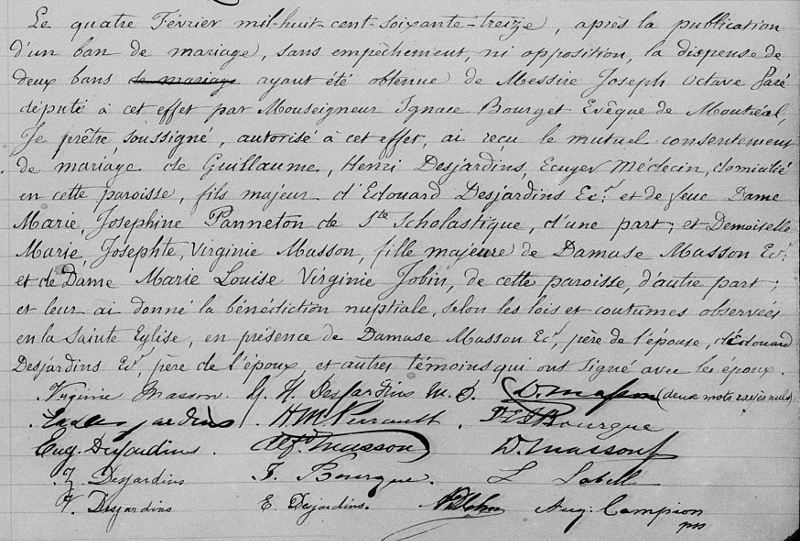 Le quatre Février mil-huit-cent-soixante-treize, après la publication
d'un ban de mariage, sans empêchement, ni opposition, la dispense de
deux bans de mariage ayant été obtenue de Messire Joseph Octave Paré
député à cet effet par Monseigneur Ignace Bourget Evêque de Montréal,
Je prêtre, soussigné, autorisé à cet effet, ai reçu le mutuel consentement
de mariage de Guillaume, Henri Desjardins, Ecuyer Médecin, domicilié
en cette paroisse, fils majeur d'Edouard Desjardins Ecr. et de feue Dame
Marie, Josephine Panneton de Ste Scholastique, d'une part; et Demoiselle
Marie, Josephte, Virginie Masson, fille majeure de Damase Masson Ecr.
et de Dame Marie Louise Virginie Jobin, de cette paroisse, d'autre part;
et leur ai donné la bénédiction nuptiale, selon les lois et coutumes observées
en la Sainte Eglise, en présence de Damase Masson Ecr, père de l'épouse, d'Edouard
Desjardins Ecr, père de l'époux et autres témoins qui ont signé avec les époux.
Virginie Masson. G. H. Desjardins M.D. D. Masson (deux mots rayés nuls)
Ed Desjardins H. M. Perrault Bourgue
Eug. Desjardins. Alfd Masson D. Masson f
Z Desjardins F. Bourgue. L Labell
V. Desjardins E. Desjardins. Aug. Campion
pss